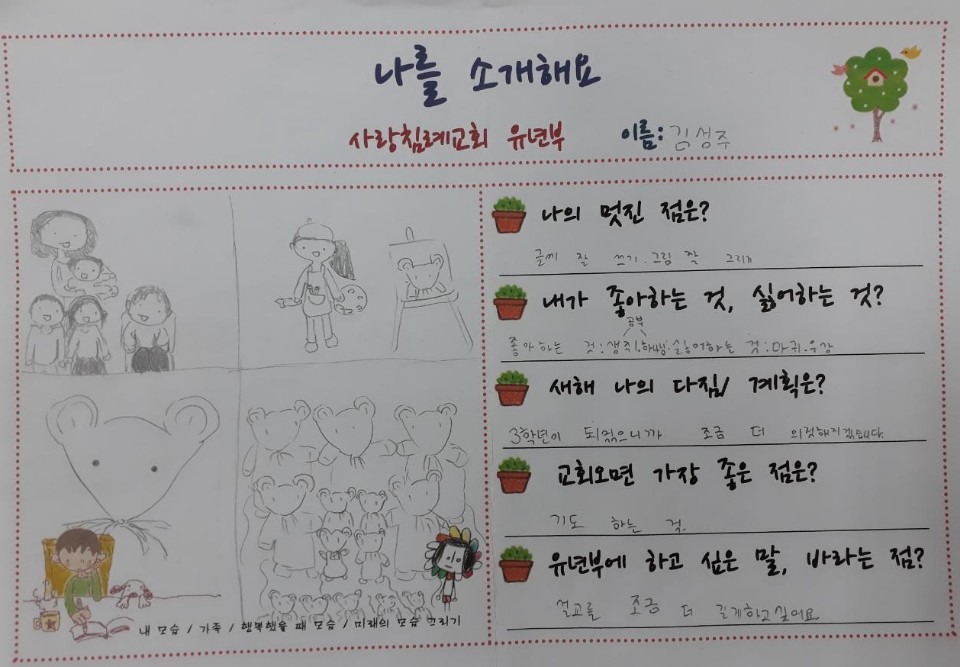 나를 소개해요
사랑침례교회 유년부 이름: 김성주
나의 멋진 점은?
글씨 잘 쓰기. 그림 잘 그리기
내가 좋아하는 것, 싫어하는 것?
공부
좋아하는 것: 생쥐, 싫어하는 것: 마귀.
새해 나의 다짐/ 계획은?
3학년이 되었으니까 조금 더 의젓해지겠습니다.
교회오면 가장 좋은 점은?
기도 하는 것.
유년부에 하고 싶은 말, 바라는 점?
설교를 조금 더 길게하고싶어요
내 모습 / 가족 / 행복했을 때 모습 / 미래의 모습 그리기